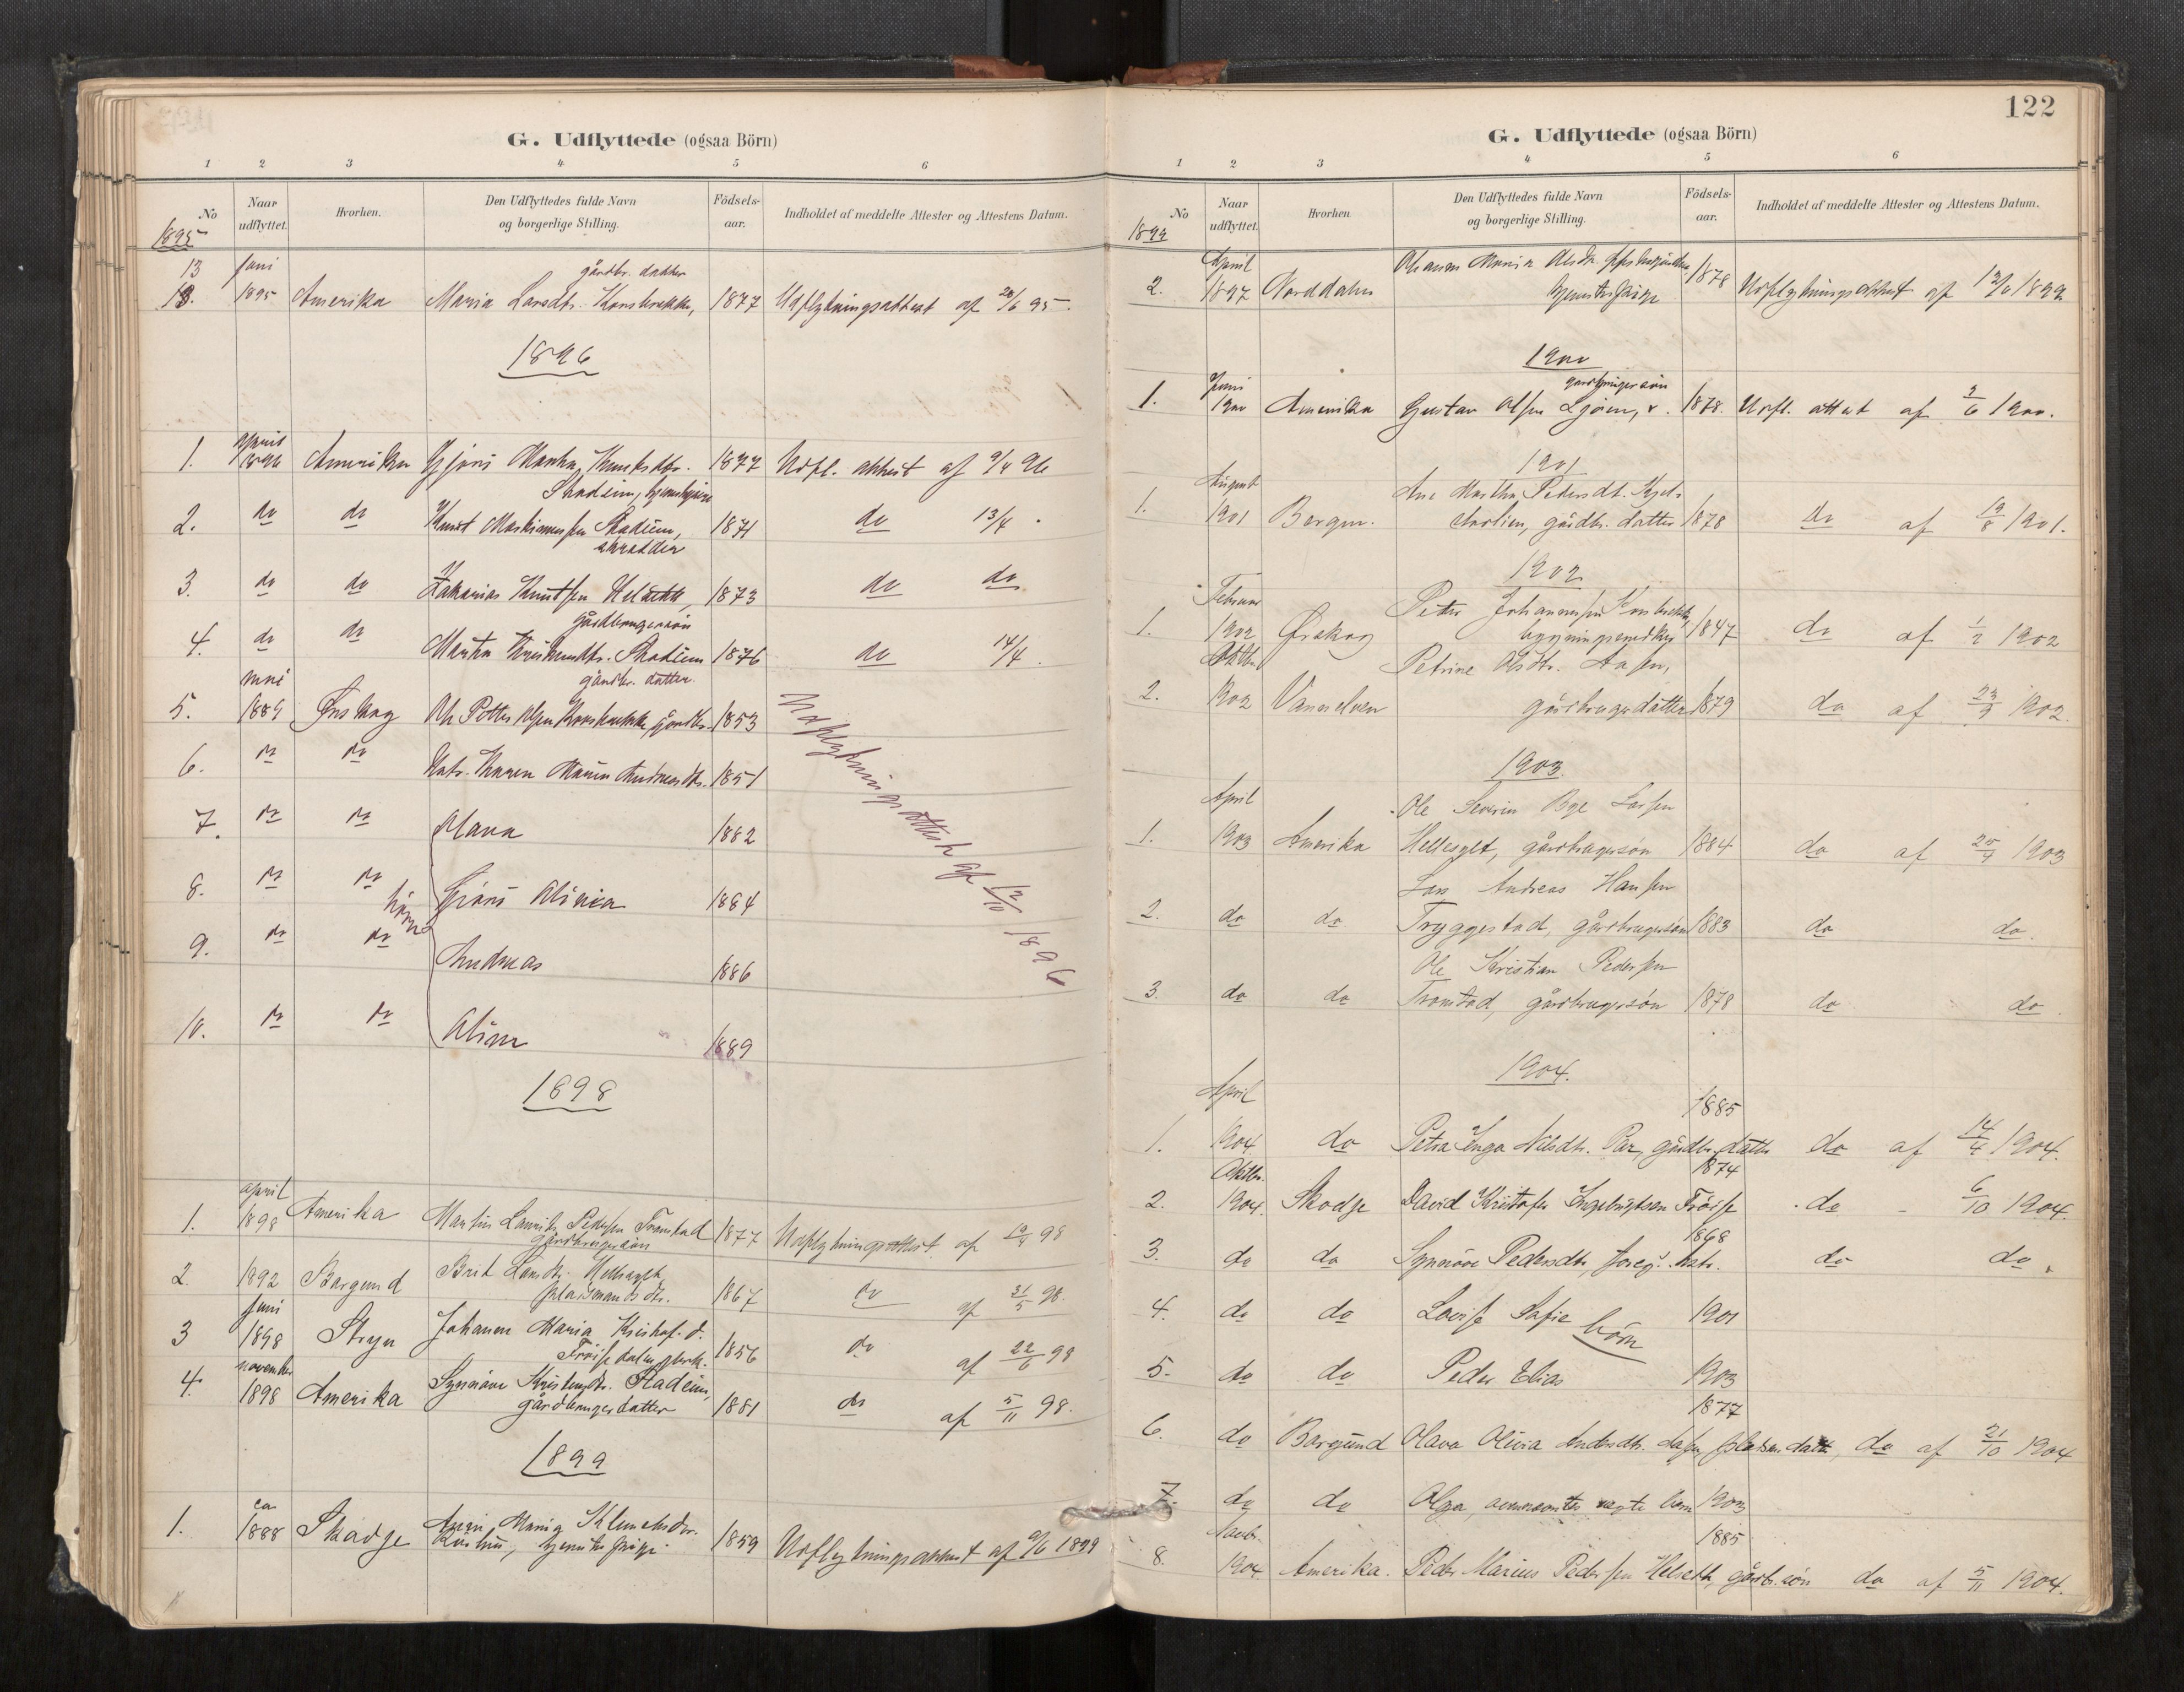 G. Udflyttede (ogsaa Börn)
1 2 3 4 5 6
No Naar udflyttet. Hvorhen. Den Udflyttedes fulde Navn og borgerlige Stilling. Födsels-aar. Indholdet af meddelte Attester og Attestens Datum.
1895
13 Juni gårdbr. datter
13. 1895 Amerika Maria Larsdtr. 1877 Udflytningsattest af 20/6 95.
1896
1. April 1896 Amerika Gjøri Martha Knutsdtr. 1877 Udfl. attest af 9/4 96
Stadeim,
2. do do Knut Stadeim, 1871 do 13/4.
skrædder
3. do do Zakarias Knutsen 1873 do do
gårdbrugersøn
4. do do Stadeim 1876 do 14/4.
gårdbr. datter.
5. mai 1889 Ørskog Petter Olsen gårdbr. 1853
Udflytningsattest af 12/10 1896
6. do do Karen 1851
7. do do Olava 1882
8. do do Gjøri Olivia 1884
børn
9. do do Andreas 1886
10. do do Oline 1889
1898
1. april 1898 Amerika Laurits Pedersen Tramstad 1877 Udflytningsattest af 98
gårdbrugersøn
2. 1892 Borgund Brit Larsdtr. 1867 do af 21/5 98.
plasmandsdtr.
3 Juni 1898 Stryn Johanne Maria Kristof. d. 1856 do af 22/6 98
4. november 1898 Amerika Synnøve Stadeim, 1881 do af 5/11 98.
gårdbrugerdatter
1899
1. ca 1888 Skodje Maria 1859 Udflytningsattest af 9/6 1899
122
G. Udflyttede (ogsaa Börn)
1 2 3 4 5 6
No Naar udflyttet. Hvorhen Den Udflyttedes fulde Navn og borgerlige Stilling. Födsels-aar. Indholdet af meddelte Attester og Attestens Datum.
1899
2. April 1897 Norddalen Maria Olsdtr. 1878 Udflytningsattest af 1899
1900
gardbrugersøn
1. Juni 1900 Amerika Gustav Olsen Ljøen, 1878. Udfl. attest af 2/6 1900.
1901
1. August 1901 Bergen. Ane Martha Pedersdt. 1878 do af 19/8 1901.
gårdbr. datter
1902
1. Februar 1902 Ørskog Peter Johannessen 1847 do af 1/2 1902
Petrine Olsdtr. Aasen,
2. 1902 Vannelven gårdbrugerdatter 1879 do af 23/9 1902.
1903
April Ole Severin Bye Larsen
1. 1903 Amerika Hellesylt, gårdbrugersøn 1884 do af 25/4 1903
Lars Andreas Hansen
2. do do Tryggestad, gårdbrugersøn 1883 do do.
Ole Kristian Pedersen
3. do do Tramstad, gårdbrugersøn 1878 do do.
1904.
April 1885
1. 1904. do Petra Inga Nilsdtr. gårdbr. datter do af 14/4 1904.
Oktbr. 1874
2. 1904. Skodje David Kristofer Ingebrigtsen Frøise do - 6/10 1904.
1868
3. do do Synnøve Pedersdtr., foreg.s hstr. do do.
4. do do Lovise Sofie 1901
børn
5. do do Peder Elias 1903
1877
6. do Borgund Olava Olivia Andersdtr. do af 21/10 1904
7. do do Olga, ægte barn 1903
Novb. 1885
8. 1904. Amerika. Peder Marius Pedersen Helseth, gårdb.søn do af 5/11 1904.